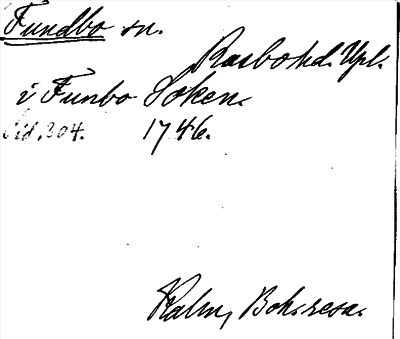 Fundbo sn.
Rasbo hd. Upl.
i Funbo Soken.
Sid. 304. 1746.
Kalm, Boh. resa.